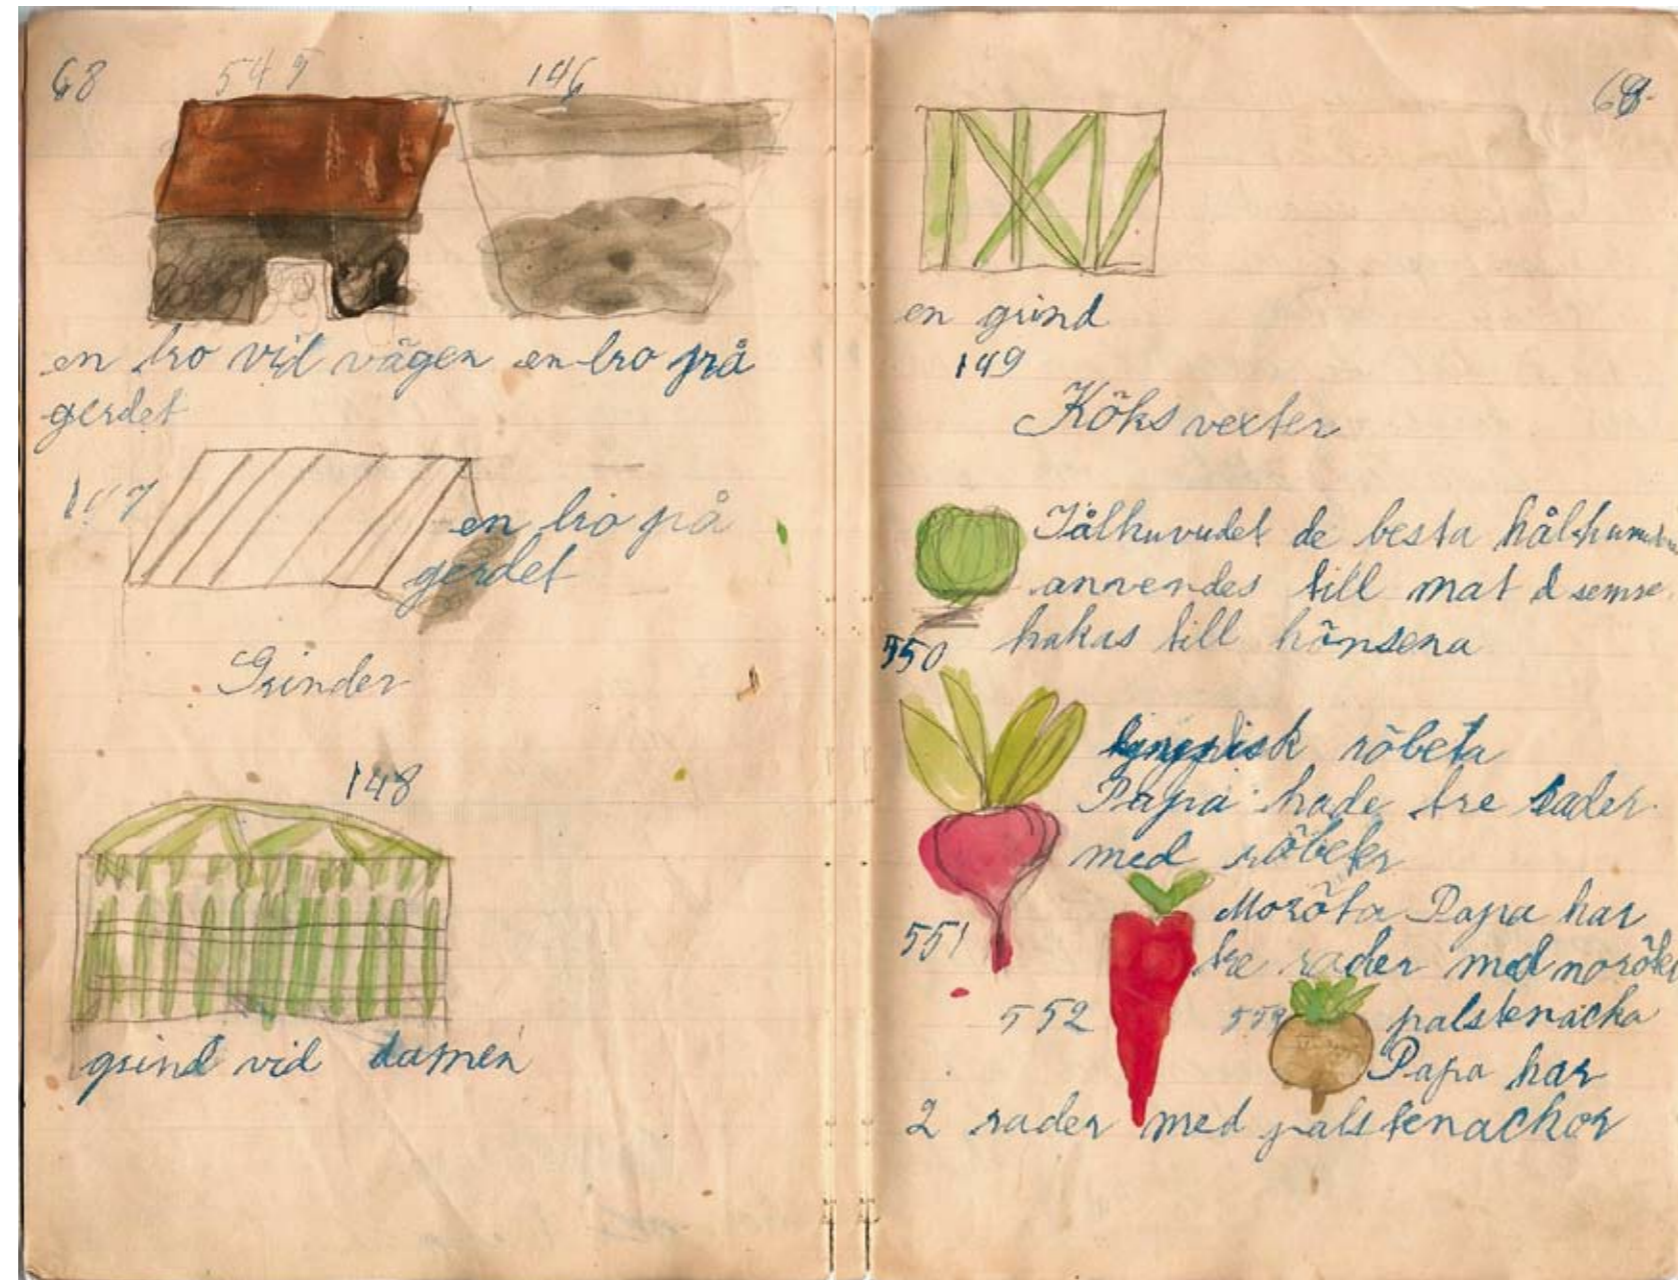 68
545 146
en bro vid vägen en bro på
gerdet
en bro på
gerdet
Grinder
148
grind vid damen
en grind
149
Köks vexter
Kålhuvudet de besta kålhuvudena
anvendes till mat d semre
hakas till hönsena
550
röbeta
Papa hade tre rader
med röbeter
551
Moröta Papa har
tre rader med moröter
552
palstenacka
Papa har
2 rader med palstenackor